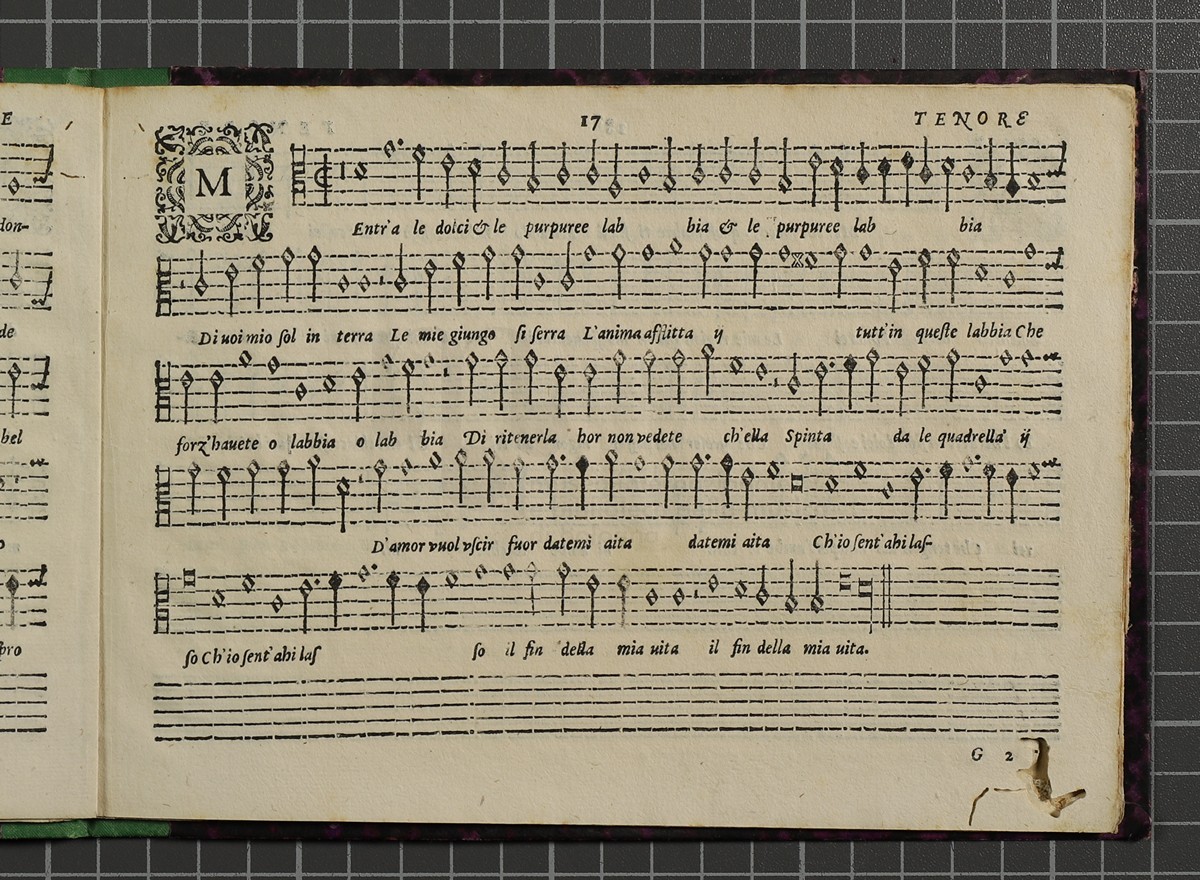 E
don-
de
bel
pro
17
TENORE
M
Entr'a le dolci & le purpuree lab bia & le purpuree lab bia
Di uoi mio sol in terra Le mie giungo si serra L'anima afflitta ij tutt'in queste labbia Che
forz'hauete o labbia o lab bia Di ritenerla hor non vedete ch'ella Spinta da le quadrella' ij
D'amor vuol vscir fuor datemi aita datemi aita Ch'io sent'ahi las-
so Ch'io sent'ahi las so il fin della mia uita il fin della mia uita.
G 2